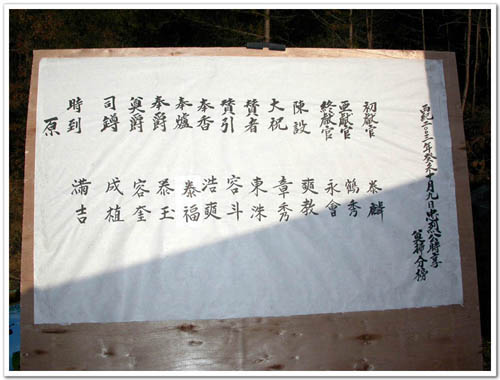 西紀二〇〇三年癸未十月九日忠烈公時享
執禮分榜
初獻官 泰麟
亞獻官 鶴秀
終獻官 永會
陳設 奭教
大祝 章秀
贊者 東洙
贊引 容斗
奉香 浩奭
奉爐 泰福
奉爵 恭玉
奠爵 容奎
司罇 成植
時到 滿吉
原